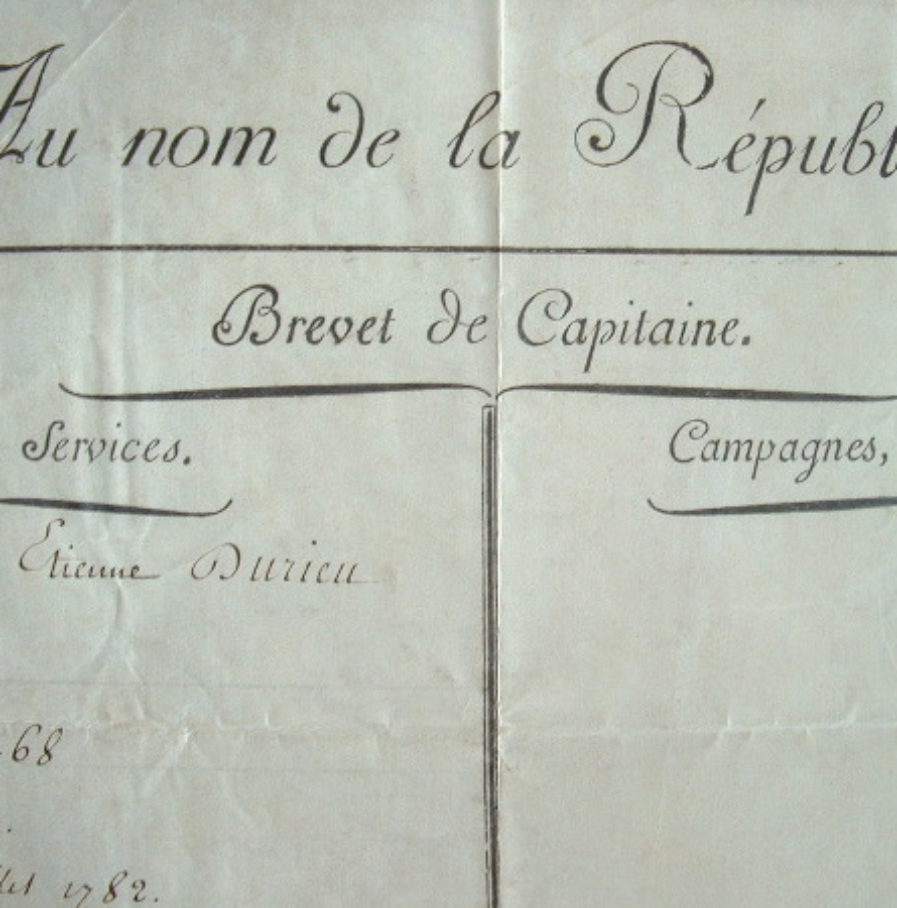 Au nom de la Républ
Brevet de Capitaine.
Services.
Campagnes,
Etienne Durieu
68
let 1782.